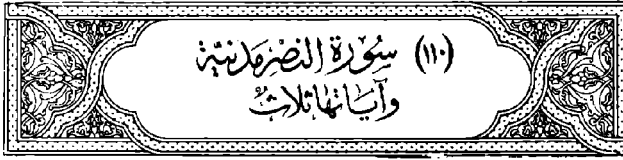 (١١٠) سُورَة النصْر مَدنيَّة
وآيَاتهَا ثلاثٌ